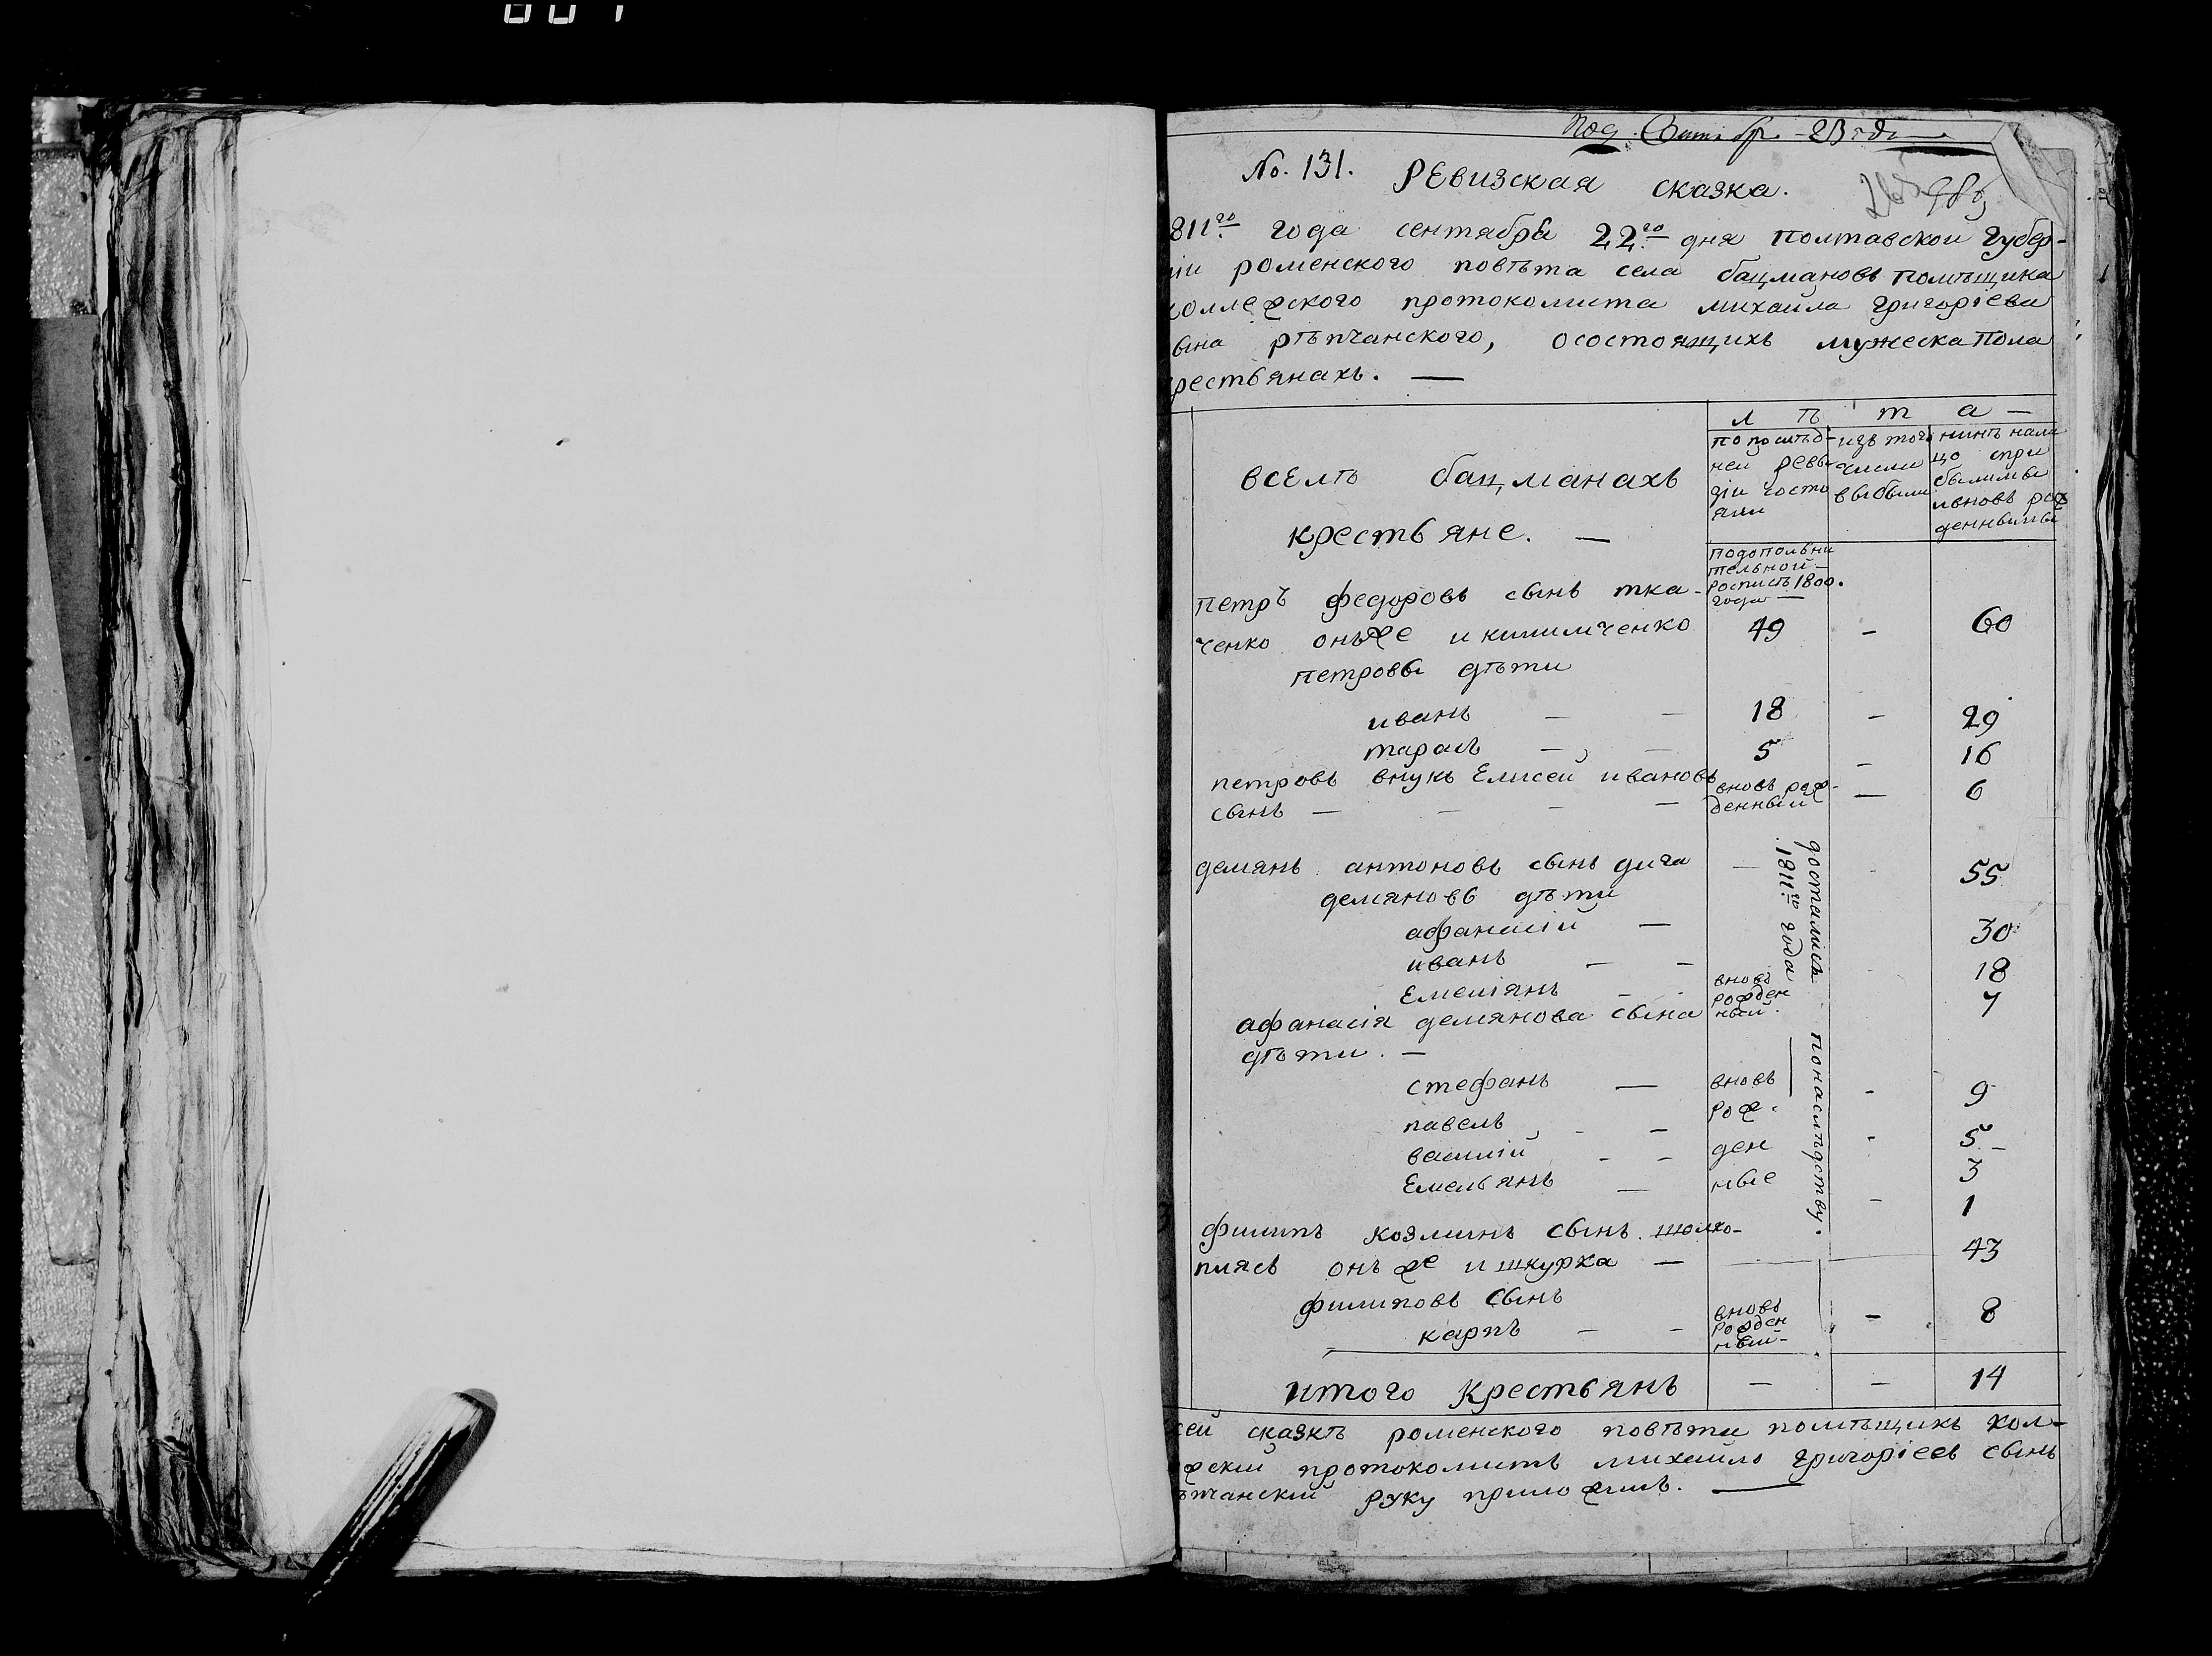 No. 131. Ревизская сказка.
811го года сентября 22го дня полтавской губер-
ніи роменского повѣта села бацмановъ помѣщика
коллежского протоколиста михайла григоріева
сына рѣпчанского, осостоящихъ мужеска пола
крестьянахъ. —
л ѣ т а —
вселѣ бацманахъ
крестьяне. —
попослѣд-
ней реви-
зіи состо
яли
изъ того
числа
выбыли
нинѣ нали
цо спри
былыми
ивновь рож
денными
подополни
тельной
росписѣ 1800.
года —
петръ федоровъ сынъ тка-
ченко онъже и килимченко 49 - 60
петровы дѣти
иванъ — — 18 - 29
тарасъ — — 5 - 16
петровъ внукъ Елисей ивановъ
сынъ — — — — вновь рож-
денный — 6
демянъ антоновъ сынъ дига — - 55
демяновы дѣти
афанасій — 30
иванъ — — 18
Емеліянъ — - вновь
рожден
ный. 7
афанасія демянова сына
дѣти. —
стефанъ — вновь - 9
павелъ - — рож. - 5
василій - — ден 3
Емельянъ — ные - 1
достались понаслѣдству.
1811го года —
филипъ козминъ сынъ
плясъ онъже и шкурка — — 43
филиповъ сынъ
карпъ — - вновь
рожден
ный - 8
итого крестьянъ — — 14
сей сказкѣ роменского повѣта помѣщикъ кол-
жскій протоколистъ михайло григоріевъ сынъ
пчанскій руку приложилъ. —